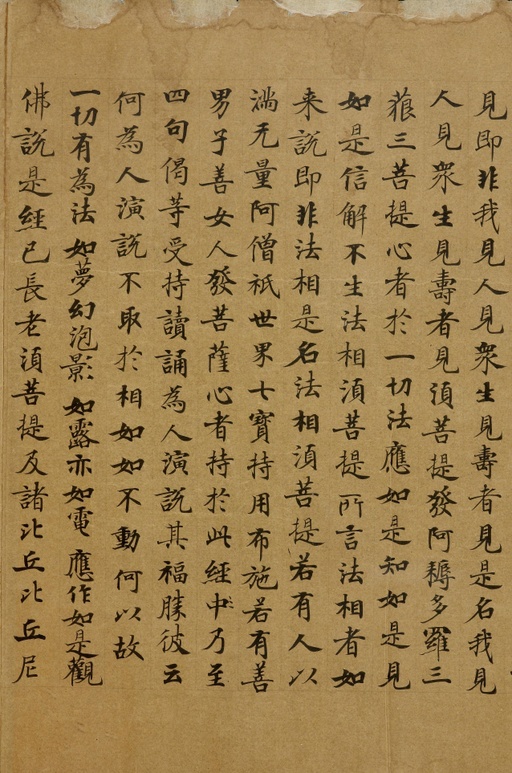 見即非我見人見衆生見壽者見是名我見
人見衆生見壽者見須菩提發阿耨多羅三
藐三菩提心者於一切法應如是知如是見
如是信解不生法相須菩提所言法相者如
来説即非法相是名法相須菩提若有人以
滿无量阿僧祇世界七寶持用布施若有善
男子善女人發菩薩心者持於此經中乃至
四句偈等受持讀誦為人演説其福勝彼云
何為人演説不取於相如如不動何以故
一切有為法如夢幻泡影如露亦如電應作如是觀
佛説是經已長老須菩提及諸比丘比丘尼